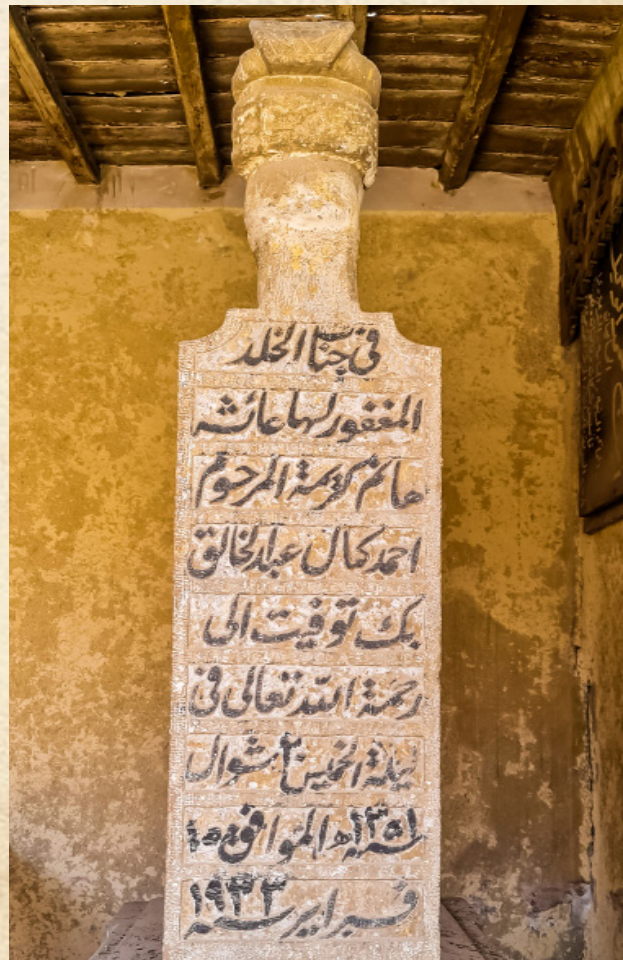 في جنات الخلد
المغفور لها عائشه
هانم كريمة المرحوم
احمد كمال عبد الخالق
بك توفيت الى
رحمة الله تعالى في
ليلة الخميس شوال
سنة ١٣٥١ھ الموافق ١٥
فبراير سنة ١٩٣٣